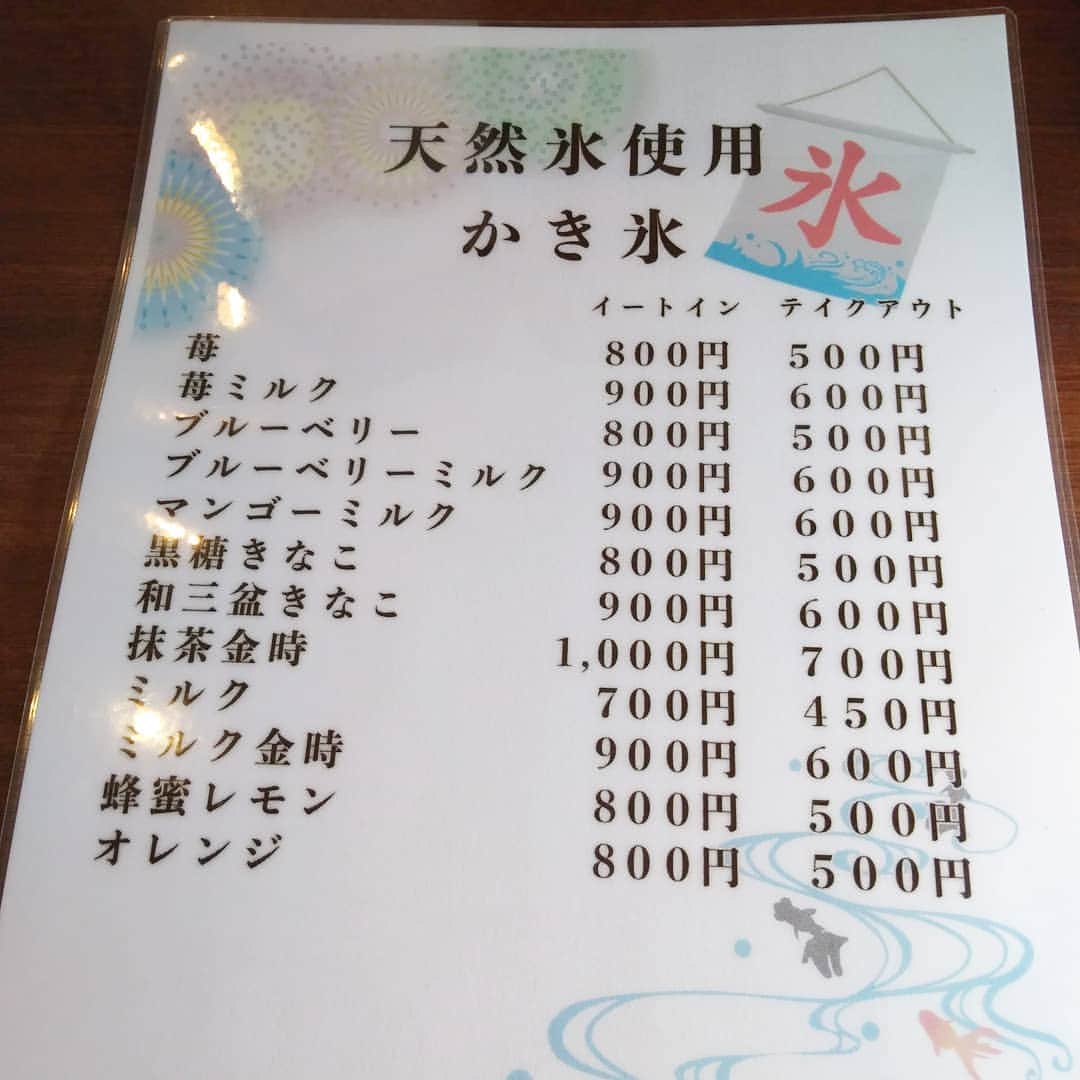 天然氷使用
氷
かき氷
イートイン テイクアウト
苺 800円 500円
苺ミルク 900円 600円
ブルーベリー 800円 500円
ブルーベリーミルク 900円 600円
マンゴーミルク 900円 600円
黒糖きなこ 800円 500円
和三盆きなこ 900円 600円
抹茶金時 1,000円 700円
ミルク 700円 450円
ミルク金時 900円 600円
蜂蜜レモン 800円 500円
オレンジ 800円 500円